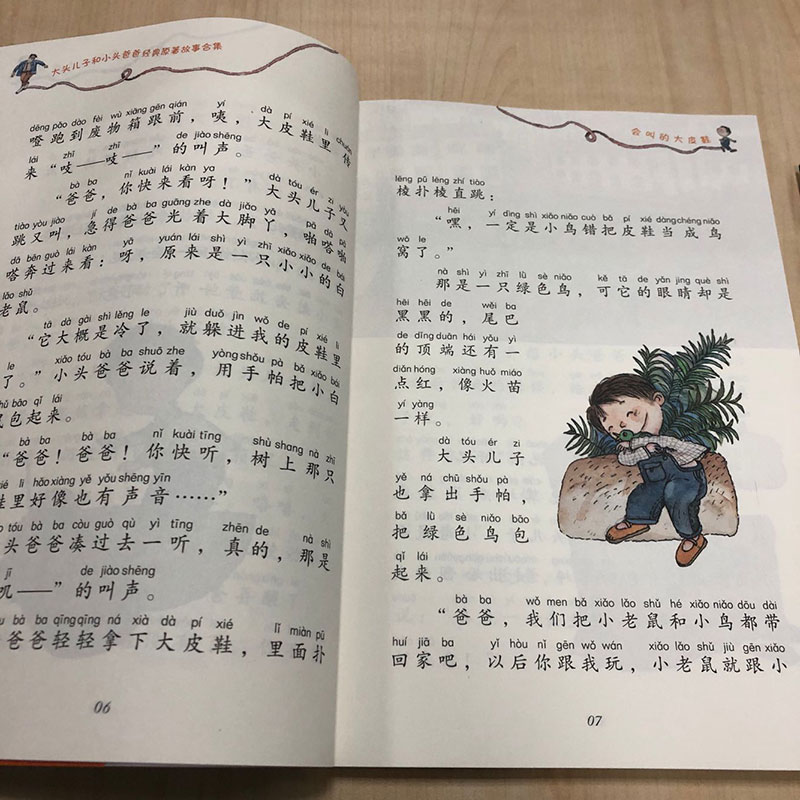 大头儿子和小头爸爸经典原著故事合集
dēng pǎo dào fèi wù xiāng gēn qián yí dà pí xié lǐ chuán
噔跑到废物箱跟前，咦，大皮鞋里传
lái zhī zhī de jiào shēng
来“吱——吱——”的叫声。
bà ba nǐ kuài lái kàn ya dà tóu ér zi yòu
“爸爸，你快来看呀！”大头儿子又
tiào yòu jiào jí de bà ba guāng zhe dà jiǎo yā pā dā pā
跳又叫，急得爸爸光着大脚丫，啪嗒啪
dā bēn guò lái kàn yā yuán lái shì yì zhī xiǎo xiǎo de bái
嗒奔过来看：呀，原来是一只小小的白
lǎo shǔ
老鼠。
tā dà gài shì lěng le jiù duǒ jìn wǒ de pí xié lǐ
“它大概是冷了，就躲进我的皮鞋里
le xiǎo tóu bà ba shuō zhe yòng shǒu pà bǎ xiǎo bái
了。”小头爸爸说着，用手帕把小白
bāo qǐ lái
鼠包起来。
bà ba bà ba nǐ kuài tīng shù shang nà zhī
“爸爸！爸爸！你快听，树上那只
lǐ hǎo xiàng yě yǒu shēng yīn
鞋里好像也有声音……”
tóu bà ba còu guò qù yì tīng zhēn de nà shì
头爸爸凑过去一听，真的，那是
jī de jiào shēng
叽——”的叫声。
bà ba qīng qīng ná xià dà pí xié lǐ miàn pū
爸爸轻轻拿下大皮鞋，里面扑
06
会叫的大皮鞋
lēng pū lēng zhí tiào
棱扑棱直跳：
hēi yí dìng shì xiǎo niǎo cuò bǎ pí xié dàng chéng niǎo
“嘿，一定是小鸟错把皮鞋当成鸟
wō le
窝了。”
nà shì yì zhī lǜ sè niǎo kě tā de yǎn jing què shì
那是一只绿色鸟，可它的眼睛却是
hēi hēi de wěi ba
黑黑的，尾巴
de dǐng duān hái yǒu yì
的顶端还有一
diǎn hóng xiàng huǒ miáo
点红，像火苗
yí yàng
一样。
dà tóu ér zi
大头儿子
yě ná chū shǒu pà
也拿出手帕，
bǎ lǜ sè niǎo bāo
把绿色鸟包
qǐ lái
起来。
bà ba wǒ men bǎ xiǎo lǎo shǔ hé xiǎo niǎo dōu dài
“爸爸，我们把小老鼠和小鸟都带
huí jiā ba yǐ hòu nǐ gēn wǒ wán xiǎo lǎo shǔ jiù gēn xiǎo
回家吧，以后你跟我玩，小老鼠就跟小
07